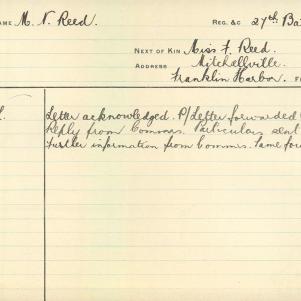 NAME M. V. Reed. REG. &C 27th Ba
NEXT OF KIN Miss F. Reed.
ADDRESS Mitchellville.
Franklin Harbor. F
Letter acknowledged. P/Letter forwarded
Reply from Commrs. Particulars sent
Further information from Commrs. Same for